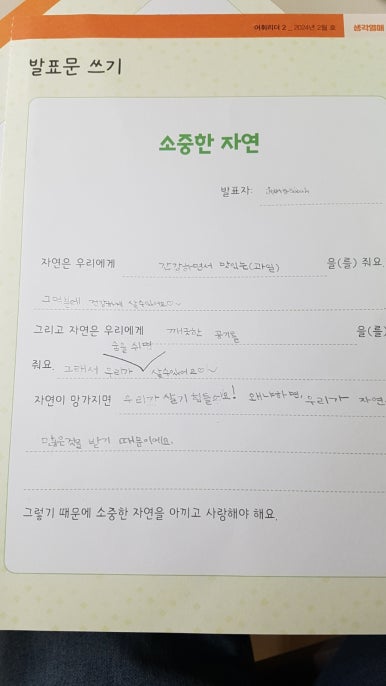 어휘리더 2 _ 2024년 2월 호 생각열매
발표문 쓰기
소중한 자연
발표자:
자연은 우리에게 건강하면서 맛있는(과일) 을(를) 줘요
그덕분에 건강하게 살수있어요♡~
그리고 자연은 우리에게 깨끗한 공기를 을(를)
숨을 쉬면
줘요. 그래서 우리가 살수있어요♡~
자연이 망가지면 우리가 살기 힘들어요! 왜냐하면, 우리가 자연
많은것을 받기 때문이에요.
그렇기 때문에 소중한 자연을 아끼고 사랑해야 해요.